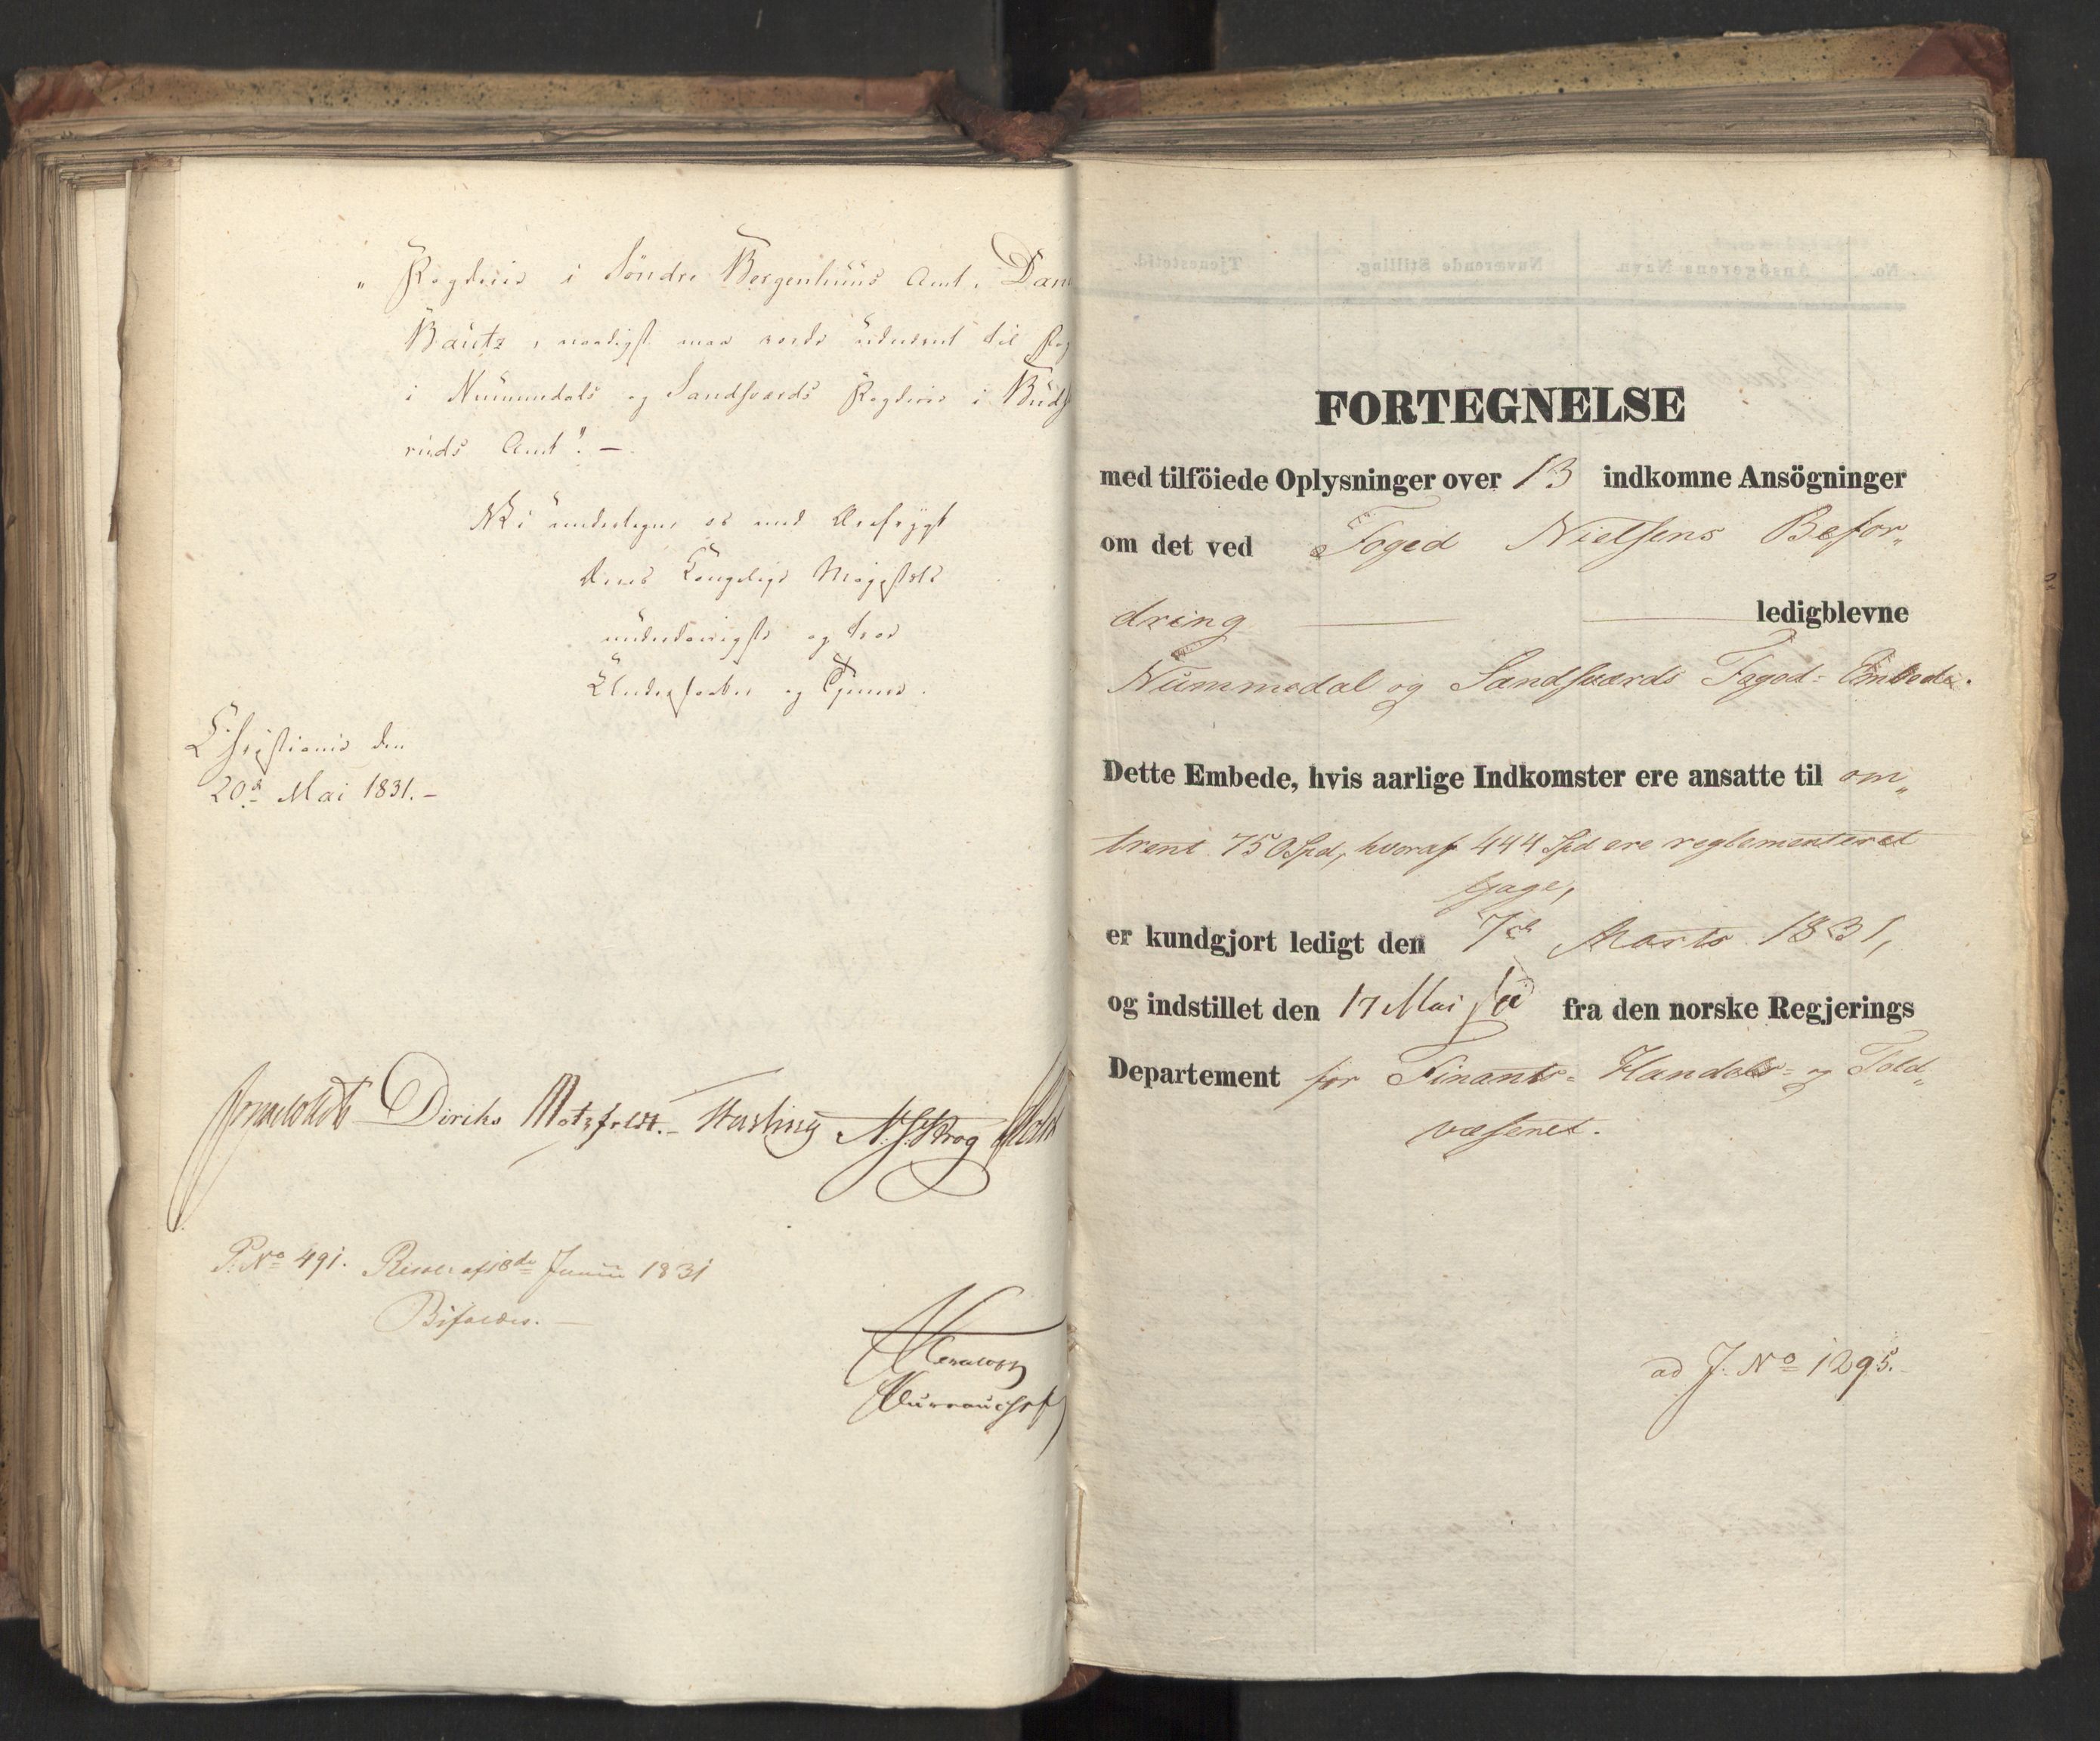 " Fogderie i Söndre Bergenhuus Amt, Dan
Bautz, naadigst maa vorde udnævnt til Fog
i Nummedals og Sandsværds Fogderie i Budsk
ruds Amt". —
Vi undertegne os med Ærefrygt
Deres Kongelige Majestæts
underdanigste og troe
Undersaatter og Tjenere.
Christiania den
20de Mai 1831. —
Diriks Motzfeldt. — N. J. Krog Holst
P. No 491. Resol. af 8de Junii 1831
Bifaldes. —
FORTEGNELSE
med tilföiede Oplysninger over 13 indkomne Ansögninger
om det ved Foged Nielsens Befor„
dring — — ledigblevne
Nummedal og Sandsværds Foged-Embede.
Dette Embede, hvis aarlige Indkomster ere ansatte til om„
trent 750 Spd, hvoraf 444 Spd ere reglementeret
Gage,
er kundgjort ledigt den 7de Marts 1831,
og indstillet den 17 Mai s. A. fra den norske Regjerings
Departement for Finants- Handels- og Told„
væsenet.
ad J. No 1295.